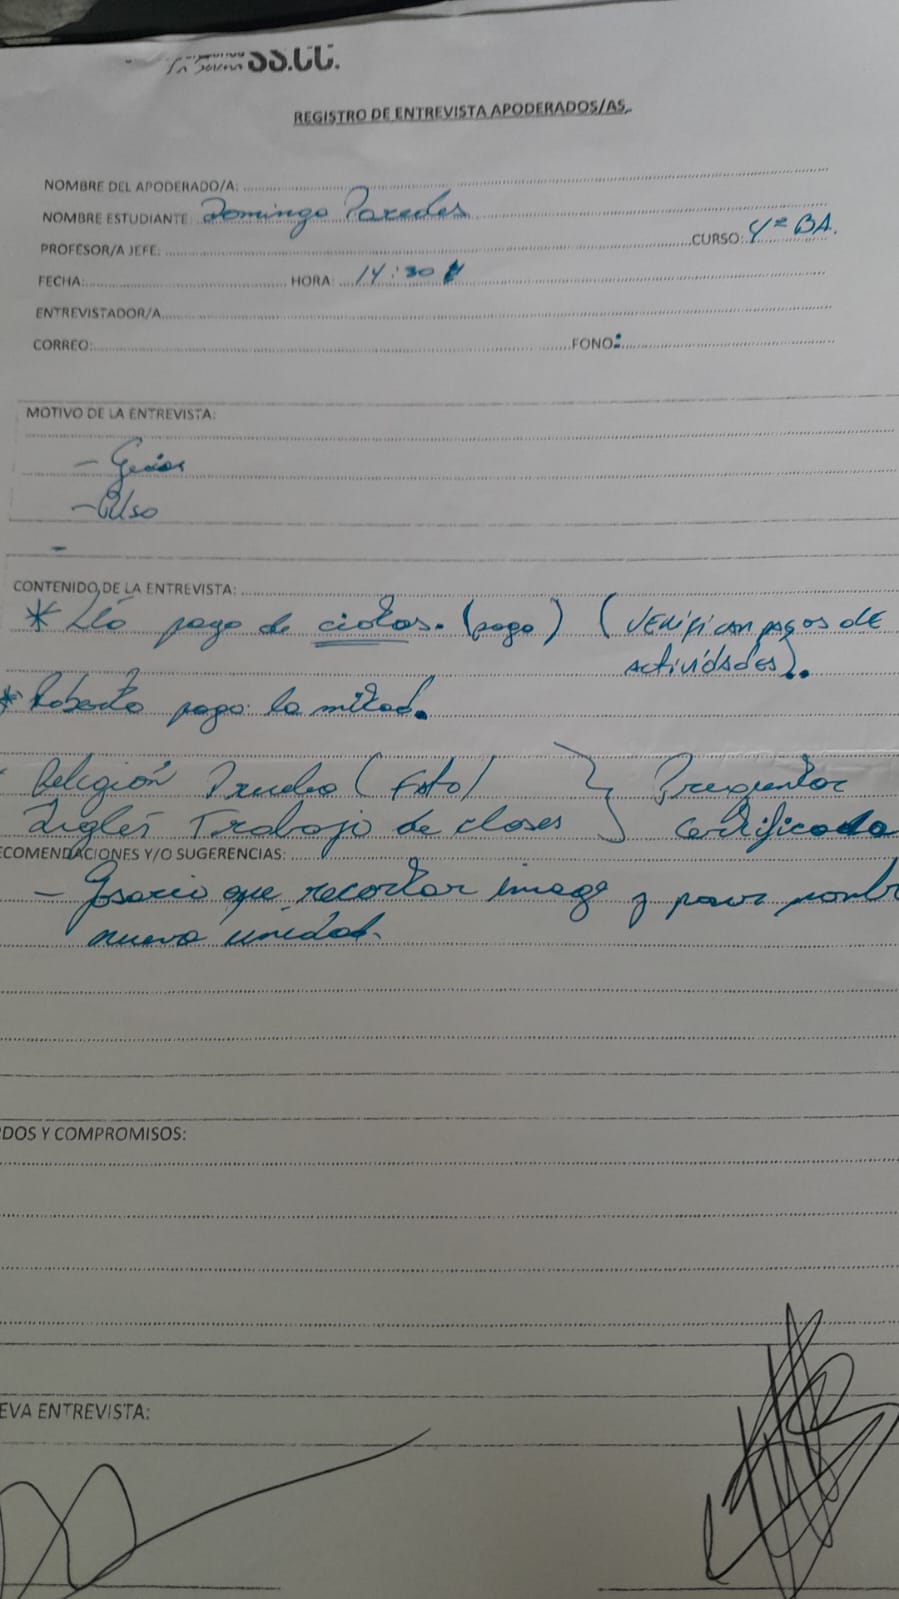 La Serena SS.CC.
REGISTRO DE ENTREVISTA APODERADOS/AS.
NOMBRE DEL APODERADO/A:
NOMBRE ESTUDIANTE: Domingo Paredes
CURSO: 4º BA.
PROFESOR/A JEFE:
FECHA: HORA: 14:30
ENTREVISTADOR/A
CORREO: FONO:
MOTIVO DE LA ENTREVISTA:
-
-
-
CONTENIDO DE LA ENTREVISTA:
* pago de (pago) (VERIFICAR PAGOS DE
ACTIVIDADES).
* Roberto pago la mitad.
Religión Prueba (Foto) } Preguntar
Inglés Trabajo de clases } certificado
ECOMENDACIONES Y/O SUGERENCIAS:
- que recortar image y
nueva unidad.
DOS Y COMPROMISOS:
EVA ENTREVISTA: